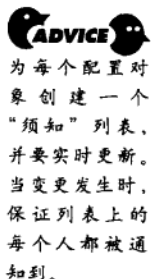 ADVICE
为每个配置对
象创建一个
“须知”列表，
并要实时更新。
当变更发生时，
保证列表上的
每个人都被通
知到。